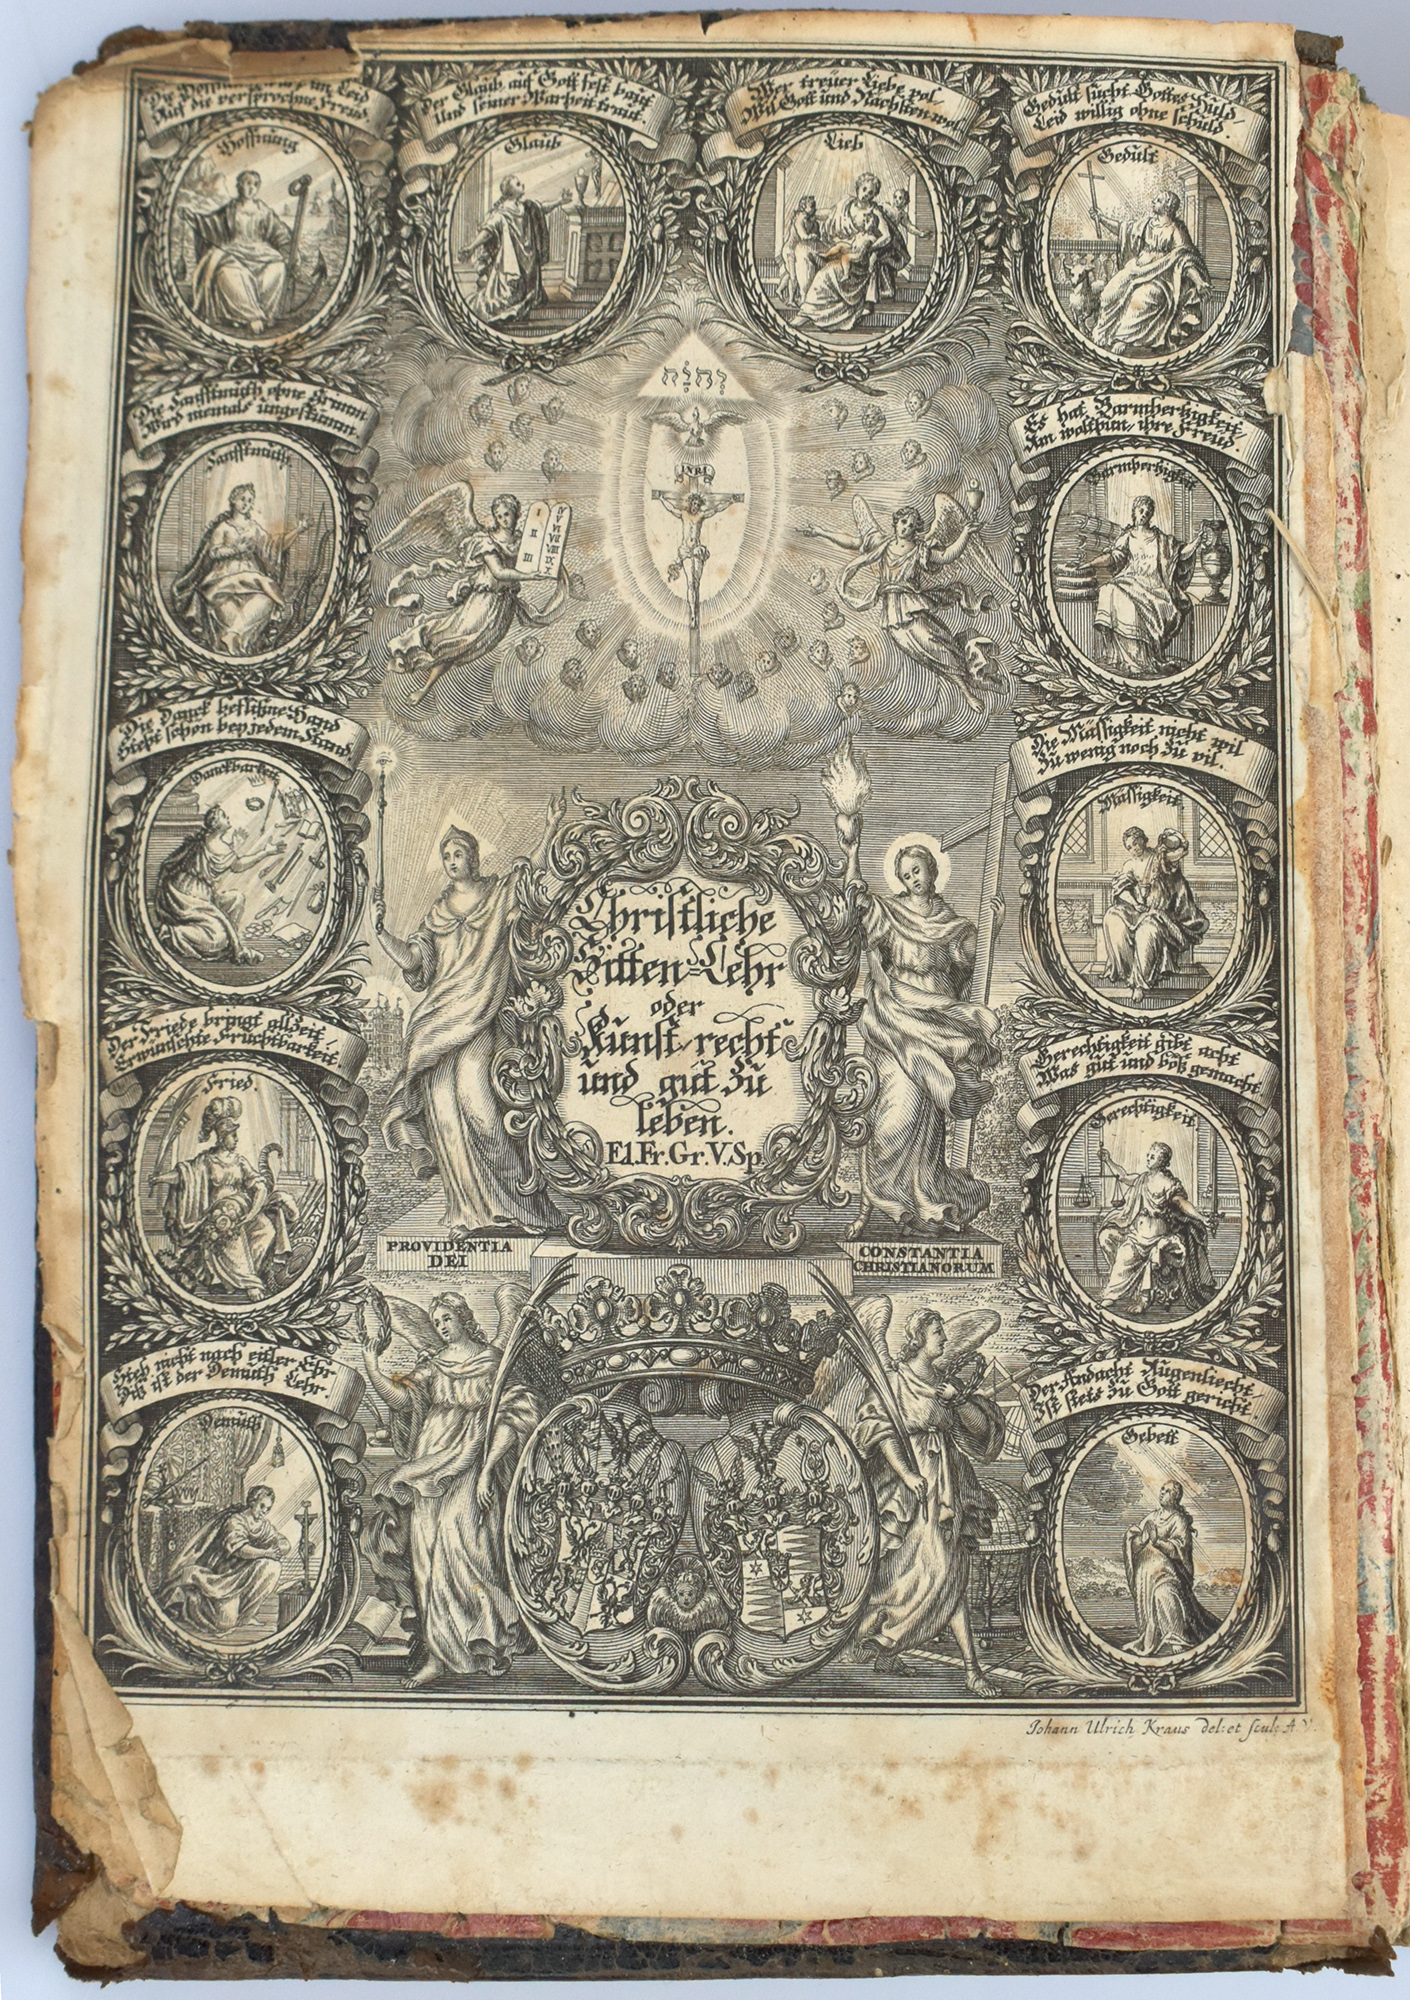 Auf die versprochne Freud.
Hoffnung
Der Glaub auf Gott fest baut
Und seiner Warheit traut.
Glaub
Wer treuer Liebe vol
Wil Gott und Nächsten wol.
Lieb
Gedult sucht Gottes Huld
Leid willig ohne schuld.
Gedult
יהוה
INRI
I
II
III
IV
V
VI
VII
VIII
IX
X
Die Sanfftmuth ohne Grimm
Wird niemals ungestümm.
Sanfftmuth
Es hat Barmhertzigkeit
Im wolthun, ihre Freud.
Barmhertzigkeit
Die Danck beflißne Hand
Steht schön bey jedem Stand.
Danckbarkeit
Die Mässigkeit nicht wil
Zu wenig noch zu vil.
Mässigkeit
Christliche
Sitten=Lehr
oder
Kunst recht
und gut zu
leben.
El. Fr. Gr. V. Sp.
Der Friede bringt allzeit
Erwünschte Fruchtbarkeit.
Fried.
Gerechtigkeit gibt acht
Was gut und böß gemacht
Gerechtigkeit
PROVIDENTIA
DEI
CONSTANTIA
CHRISTIANORUM
Steh nicht nach eitler Ehr
Diß ist der Demuth Lehr.
Demuth
Der Andacht Augenliecht
Ist stets zu Gott gericht.
Gebett
Johann Ulrich Kraus del: et sculp: A.V.